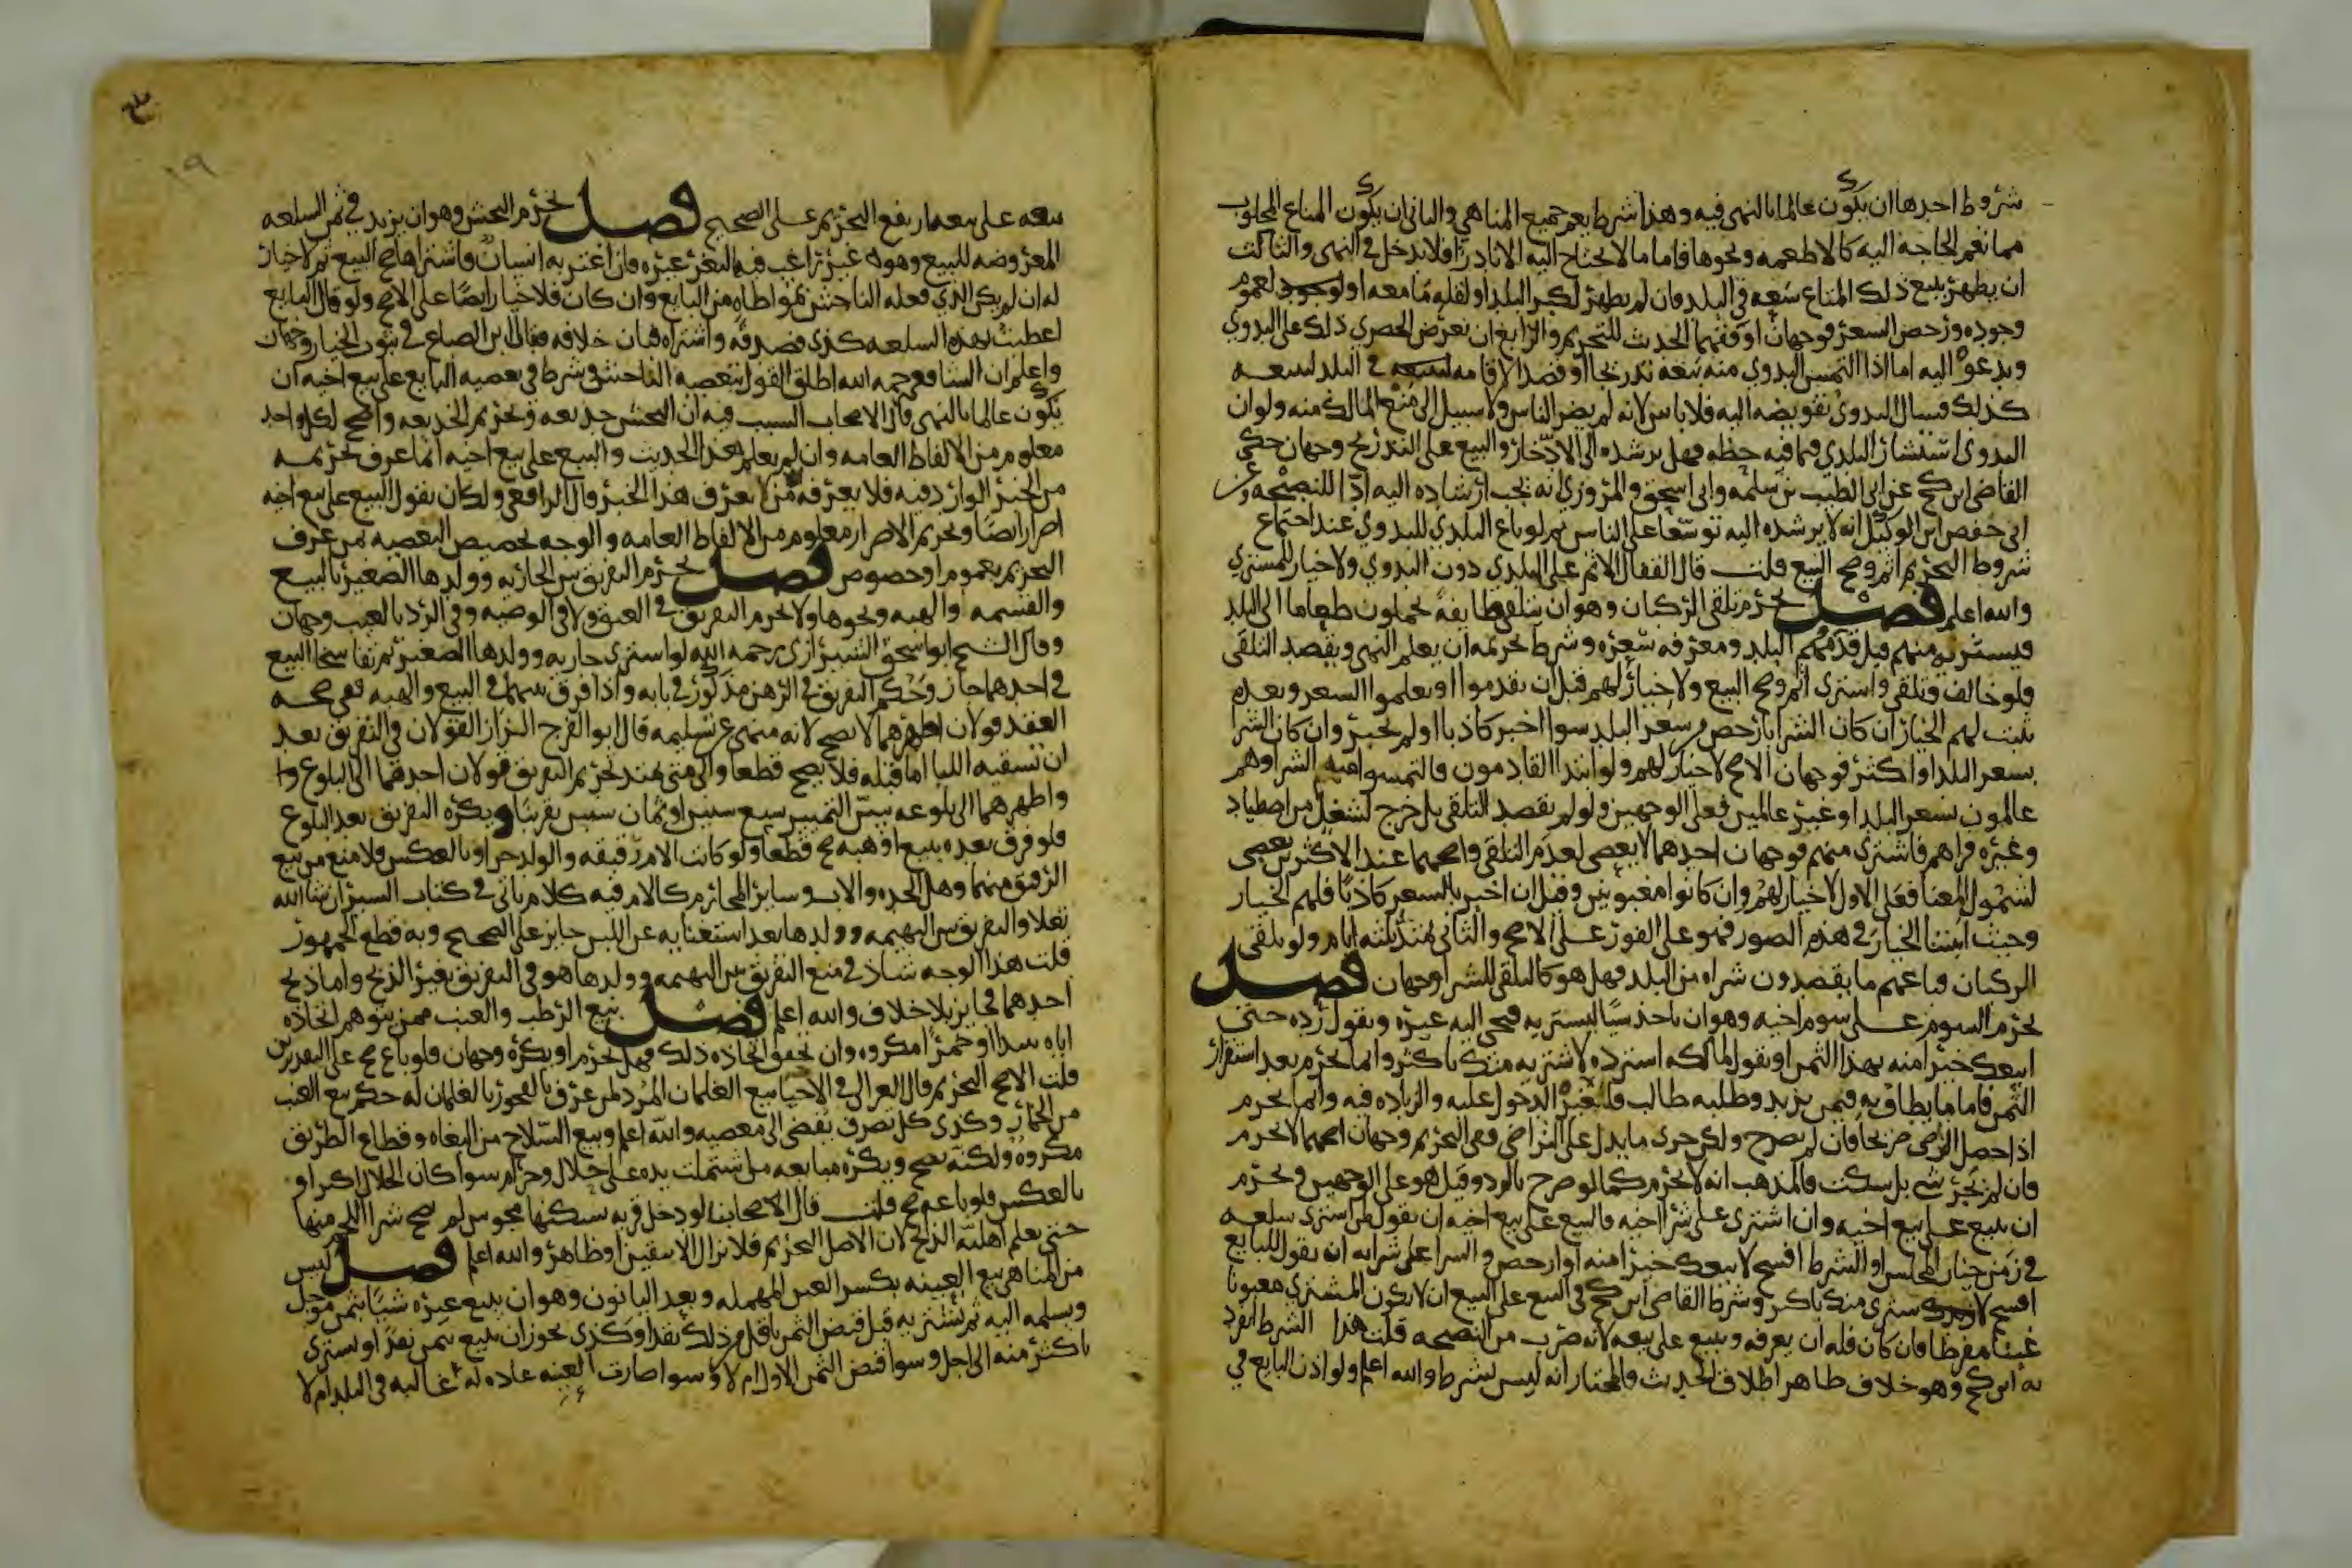 شروط احدها ان يكون عالما بالنهي فيه وهذا شرط يعم جميع المناهي والثاني ان يكون المتاع المجلوب
مما تعم الحاجة اليه كالاطعمه ونحوها فاما ما لا يحتاج اليه الا نادرا فلا يدخل في النهي والثالث
ان يظهر ببيع ذلك المتاع سعه في البلد فان لم يظهر لكبر البلد او لقله ما معه او لعموم
وجوده ورخص السعر فوجهان اوفقهما الحديث للتحريم والرابع ان يعرض الحضري ذلك على البدوي
ويدعوه اليه اما اذا التمس البدوي منه بيعه تدريجا او قصد الاقامه في البلد لبيعه
كذلك فسال البدوي تفويضه اليه فلا باس لانه لم يضر الناس ولا سبيل الى منع المالك منه ولو ان
البدوي استشار البلدي فيما فيه حظه فهل يرشده الى الادخار والبيع على التدريج وجهان حكى
القاضي ابن كج عن ابي الطيب بن سلمه وابي اسحق والمروزي انه يجب ارشاده اليه ادا للنصيحه وعن
ابي حفص ابن الوكيل انه لا يرشده اليه توسعا على الناس ثم لو باع البلدي للبدوي عند اجتماع
شروط التحريم اثم وصح البيع قلت قال القفال الاثم على البلدي دون البدوي ولا خيار للمشتري
والله اعلم فصل يحرم تلقي الركبان وهو ان يتلقى طايفة يحملون طعاما الى البلد
فيشتريه منهم قبل قدومهم البلد ومعرفه سعره وشرط تحريمه ان يعلم النهي ويقصد التلقي
فلو خالف وتلقى واشترى اثم وصح البيع ولا خيار لهم قبل ان يقدموا او يعلموا السعر وبعده
يثبت لهم الخيار ان كان الشرا بارخص من سعر البلد سوا اخبر كاذبا او لم يخبر وان كان الشرا
بسعر البلد او اكثر فوجهان الاصح لا خيار لهم ولو ابتدا القادمون فالتمسوا منه الشرا وهم
عالمون بسعر البلد او غير عالمين فعلى الوجهين ولو لم يقصد التلقي بل خرج لشغل من اصطياد
وغيره فراهم فاشترى منهم فوجهان احدهما لا يعصي لعدم التلقي واصحهما عند الاكثرين يعصي
لشمول المعنا فعلى الاول لا خيار لهم وان كانوا مغبونين وقيل ان اخبر بالسعر كاذبا فلهم الخيار
وحيث اثبتنا الخيار في هذه الصور فهو على الفور على الاصح والثاني يمتد ثلثه ايام ولو تلقى
الركبان وباعهم ما يقصدون شراه من البلد فهل هو كالتلقي للشرا وجهان فصل
يحرم السوم على سوم اخيه وهو ان ياخذ شيا ليشتريه فيجي اليه غيره ويقول رده حتى
ابيعك خيرا منه بهذا الثمن او يقول لمالكه استرده لاشتريه منك باكثر وانما يحرم بعد استقرار
الثمن فاما ما يطاف به فيمن يزيد وطلبه طالب فلغيره الدخول عليه والزياده فيه وانما يحرم
اذا حصل الرضي صريحا فان لم يصرح ولكن جرى ما يدل على التراضي ففي التحريم وجهان اصحهما لا يحرم
فان لم يجر شي بل سكت فالمذهب انه لا يحرم كما لو صرح بالرد وقيل هو على الوجهين ويحرم
ان يبيع على بيع اخيه وان اشترى على شرا اخيه فالبيع على بيع اخيه ان يقول لمن اشترى سلعه
في زمن خيار المجلس او الشرط افسح لا بيعك خيرا منه او ارخص والشرا على شرايه ان يقول للبايع
افسح لاشتري منك باكثر وشرط القاضي ابن كج في البيع على البيع ان لا يكون المشتري مغبونا
غبنا مفرطا فان كان فله ان يعرفه ويبيع على بيعه لانه ضرب من النصيحه قلت هذا الشرط انفرد
به ابن كج وهو خلاف ظاهر اطلاق الحديث والمختار انه ليس بشرط والله اعلم ولو اذن البايع في
بيعه على بيعه ارتفع التحريم على الصحيح فصل يحرم النجش وهو ان يزيد في ثمن السلعه
المعروضه للبيع وهو غير راغب فيها ليغر غيره فان اغتر به انسان واشتراها صح البيع ثم لا خيار
له ان لم يكن الذي فعله الناجش بمواطاه من البايع وان كان فلا خيار ايضا على الاصح ولو قال البايع
اعطيت بهذه السلعه كذي فصدقه واشتراه فبان خلافه فقال ابن الصباغ في ثبوت الخيار وجهان
واعلم ان الشافعي رحمه الله اطلق القول بتعصيه الناجش وشرط في تعصيه البايع على بيع اخيه ان
يكون عالما بالنهي قال الاصحاب السبب فيه ان النجش خديعه وتحريم الخديعه واضح لكل واحد
معلوم من الالفاظ العامه وان لم يعلم هذا الحديث والبيع على بيع اخيه انما عرف تحريمه
من الخبر الوارد فيه فلا يعرفه من لا يعرف هذا الخبر قال الرافعي ولك ان تقول البيع على بيع اخيه
اضرار ايضا وتحريم الاضرار معلوم من الالفاظ العامه والوجه تخصيص التعصيه بمن عرف
التحريم بعموم او خصوص فصل يحرم التفريق بين الجاريه وولدها الصغير بالبيع
والقسمه والهبه ونحوها ولا يحرم التفريق في العتق ولا في الوصيه وفي الرد بالعيب وجهان
وقال الشيخ ابو اسحق الشيرازي رحمه الله لو اشترى جاريه وولدها الصغير ثم تفاسخا البيع
في احدهما جاز وحكم التفريق في الرهن مذكور في بابه واذا فرق بينهما في البيع والهبه ففي صحه
العقد قولان اظهرهما لا يصح لانه منهي عن تسليمه قال ابو الفرج البزاز القولان في التفريق بعد
ان تسقيه اللبا اما قبله فلا يصح قطعا والى متى يمتد تحريم التفريق قولان احدهما الى البلوغ
واظهرهما الى بلوغه سن التمييز سبع سنين او ثمان سنين تقريبا ويكره التفريق بعد البلوغ
فلو فرق بعده ببيع او هبه صح قطعا ولو كانت الام رقيقه والولد حرا او بالعكس فلا منع من بيع
الرقيق منهما وهل الجده والاب وساير المحارم كالام فيه كلام ياتي في كتاب السير ان شا الله
تعلا والتفريق بين البهيمه وولدها بعد استغنايه عن اللبن جايز على الصحيح وبه قطع الجمهور
قلت هذا الوجه شاذ في منع التفريق بين البهيمه وولدها هو في التفريق بغير الذبح واما ذبح
احدهما فجايز بلا خلاف والله اعلم فصل بيع الرطب والعنب ممن يتوهم اتخاذه
اياه نبيذا او خمرا مكروه وان تحقق اتخاذه ذلك فهل يحرم او يكره وجهان فلو باع صح على التقديرين
قلت الاصح التحريم قال الغزالي في الاحيا بيع الغلمان المرد لمن عرف بالفجور بالغلمان له حكم بيع العنب
من الخمار وكذى كل تصرف يفضي الى معصيه والله اعلم وبيع السلاح من البغاه وقطاع الطريق
مكروه ولكنه يصح ويكره مبايعه من اشتملت يده على حلال وحرام سوا كان الحلال اكثر او
بالعكس فلو باعه صح قلت قال الاصحابنا لو دخل قريه سكنها مجوس لم يصح شرا اللحم منها
حتى يعلم اهليه الذابح لان الاصل التحريم فلا تزال الا بيقين او ظاهر والله اعلم فصل ليس
من المناهي بيع العينه بكسر العين المهمله وبعد اليا نون وهو ان يبيع غيره شيا بثمن موجل
ويسلمه اليه ثم يشتريه قبل قبض الثمن باقل من ذلك نقدا وكذى يجوز ان يبيع بثمن نقدا ويشتري
باكثر منه الى اجل وسوا قبض الثمن الاول ام لا وسوا صارت العينه عاده له غالبه في البلد ام لا